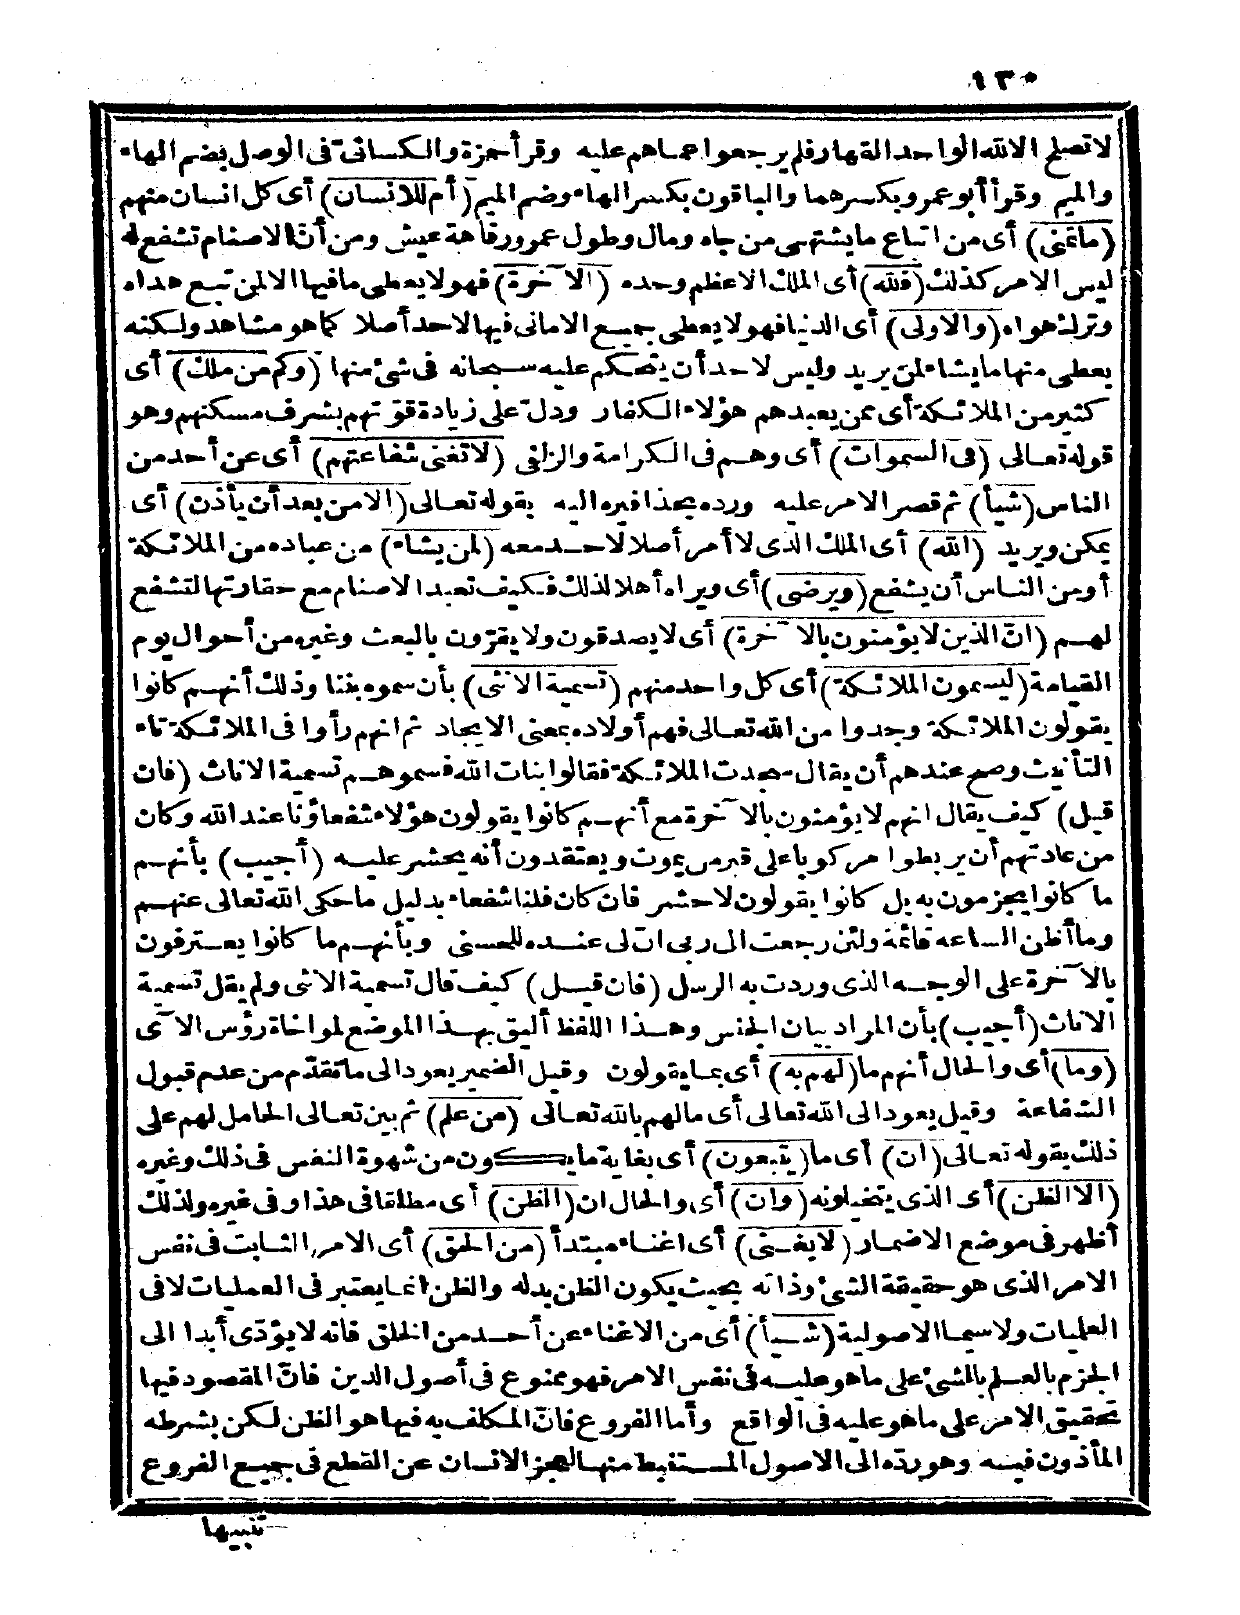 ١٣٠
لا تصلح الا لله الواحد القهار فلم يرجعوا عما هم عليه وقرأ حمزة والكسائىّ فى الوصل بضم الهاء
والميم وقرأ أبو عمرو بكسرهما والباقون بكسر الهاء وضم الميم (أم للانسان) أى كل انسان منهم
(ما تمنى) أى من اتباع ما يشتهى من جاه ومال وطول عمر ورفاهة عيش ومن أنّ الاصنام تشفع له
ليس الامر كذلك (فلله) أى الملك الاعظم وحده (الآخرة) فهو لا يعطى ما فيها الا لمن تبع هداه
وترك هواه (والاولى) أى الدنيا فهو لا يعطى جميع الامانى فيها لاحد أصلا كما هو مشاهد ولكنه
يعطى منها ما يشاء لمن يريد وليس لاحد أن يتحكم عليه سبحانه فى شئ منها (وكم من ملك) أى
كثير من الملائكة أى ممن يعبدهم هؤلاء الكفار ودل على زيادة قوّتهم بشرف مسكنهم وهو
قوله تعالى (فى السموات) أى وهم فى الكرامة والزلفى (لا تغنى شفاعتهم) أى عن أحد من
الناس (شيأ) ثم قصر الامر عليه ورده بحذافيره اليه بقوله تعالى (الا من بعد أن يأذن) أى
يمكن ويريد (الله) أى الملك الذى لا أمر أصلا لاحد معه (لمن يشاء) من عباده من الملائكة
أو من الناس أن يشفع (ويرضى) أى ويراه أهلا لذلك فكيف تعبد الاصنام مع حقارتها لتشفع
لهم (انّ الذين لا يؤمنون بالآخرة) أى لا يصدقون ولا يقرّون بالبعث وغيره من أحوال يوم
القيامة (ليسمون الملائكة) أى كل واحد منهم (تسمية الانثى) بأن سموه بنتا وذلك أنهم كانوا
يقولون الملائكة وجدوا من الله تعالى فهم أولاده بمعنى الايجاد ثم انهم رأوا فى الملائكة تاء
التأنيث وصح عندهم أن يقال سجدت الملائكة فقالوا بنات الله فسموهم تسمية الاناث (فان
قيل) كيف يقال انهم لا يؤمنون بالآخرة مع أنهم كانوا يقولون هؤلاء شفعاؤنا عند الله وكان
من عادتهم أن يربطوا مركوبا على قبر من يموت ويعتقدون أنه يحشر عليه (أجيب) بأنهم
ما كانوا يجزمون به بل كانوا يقولون لا حشر فان كان فلنا شفعاء بدليل ما حكى الله تعالى عنهم
وما أظن الساعة قائمة ولئن رجعت الى ربى ان لى عنده للحسنى وبأنهم ما كانوا يعترفون
بالآخرة على الوجه الذى وردت به الرسل (فان قيل) كيف قال تسمية الانثى ولم يقل تسمية
الاناث (أجيب) بأن المراد بيان الجنس وهذا اللفظ أليق بهذا الموضع لمواخاة رؤس الآى
(وما) أى والحال أنهم ما (لهم به) أى بما يقولون وقيل الضمير يعود الى ما تقدّم من عدم قبول
الشفاعة وقيل يعود الى الله تعالى أى ما لهم بالله تعالى (من علم) ثم بين تعالى الحامل لهم على
ذلك بقوله تعالى (ان) أى ما (يتبعون) أى بغاية ما يكون من شهوة النفس فى ذلك وغيره
(الا الظن) أى الذى يتخيلونه (وان) أى والحال ان (الظن) أى مطلقا فى هذا وفى غيره ولذلك
أظهر فى موضع الاضمار (لا يغنى) أى اغناء مبتدأ (من الحق) أى الامر الثابت فى نفس
الامر الذى هو حقيقة الشئ وذاته بحيث يكون الظن بدله والظن انما يعتبر فى العمليات لا فى
العلميات ولا سيما الاصولية (شيأ) أى من الاغناء عن أحد من الخلق فانه لا يؤدّى أبدا الى
الجزم بالعلم بالشئ على ما هو عليه فى نفس الامر فهو ممنوع فى أصول الدين فانّ المقصود فيها
تحقيق الامر على ما هو عليه فى الواقع وأما الفروع فانّ المكلف به فيها هو الظن لكن بشرطه
المأذون فيه وهو ردّه الى الاصول المستنبط منها لعجز الانسان عن القطع فى جميع الفروع
تنبيها